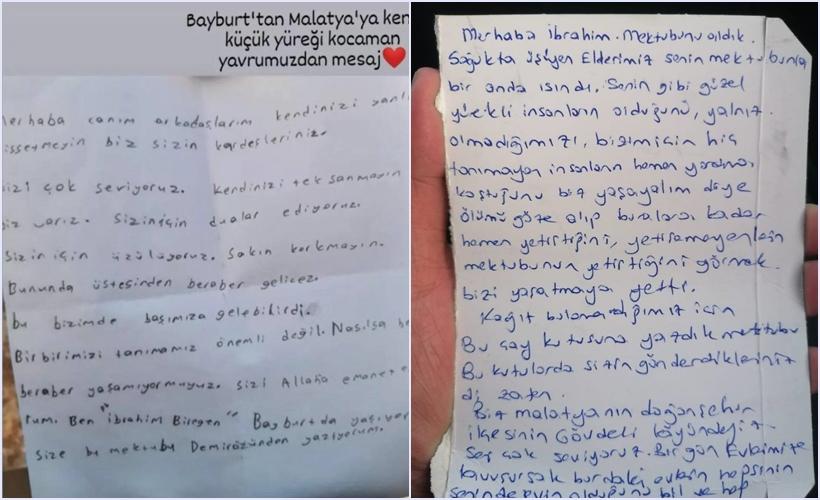 Bayburt'tan Malatya'ya ken
küçük yüreği kocaman
yavrumuzdan mesaj❤️
Merhaba canım arkadaşlarım kendinizi yanlı
issetmeyin biz sizin kardeşleriniz.
izi çok seviyoruz. Kendinizi tek sanmayın
biz varız. Sizin için dualar ediyoruz.
Sizin için üzülüyoruz. Sakın korkmayın.
Bununda üstesinden beraber gelicez.
bu bizimde başımıza gelebilirdi.
Birbirimizi tanımamız önemli değil. Nasılsa be
beraber yaşamıyormuyuz. Sizi Allaha emanet e
rum. Ben "İbrahim Birgen" Bayburtda yaşıyor
size bu mektubu Demirözünden yazıyorum.
Merhaba İbrahim. Mektubunu aldık.
Soğukta üşüyen Ellerimiz senin mektubunla
bir anda ısındı. Senin gibi güzel
yürekli insanların olduğunu, yalnız
olmadığımızı, bizim için hiç
tanımayan insanların hemen yardıma
koştuğunu biz yaşayalım diye
ölümü göze alıp buralara kadar
hemen yetiştiğini, yetişemeyenlerin
mektubunun yetiştiğini görmek
bizi yaşatmaya yetti.
Kağıt bulamadığımız için
Bu çay kutusuna yazdık mektubu
Bu kutularda sizin gönderdikleriniz
di zaten.
Biz malatyanın doğanşehir
ilçesinin Gövdeli köyündeyiz
Seni çok seviyoruz. Bir gün Evlerimize
kavuşursak burdaki evlerin hepsinin
senin de evin olduğunu bil ve hep